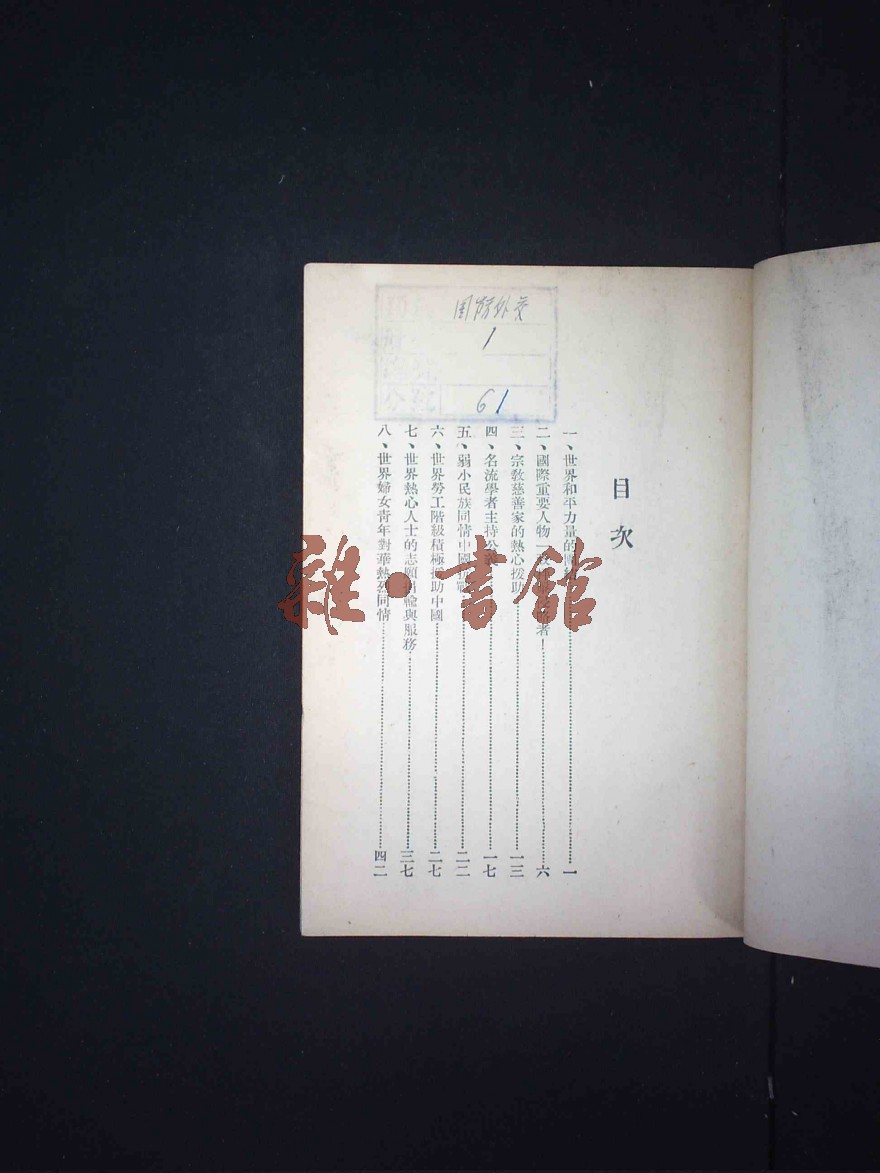 國防外交
1
61
目次
一、世界和平力量的……一
二、國際重要人物一……者！……六
三、宗教慈善家的熱心援助……一三
四、名流學者主持公……一七
五、弱小民族同情中國……二二
六、世界勞工階級積極援助中國……二七
七、世界熱心人士的志願捐輸與服務……三七
八、世界婦女青年對華熱烈同情……四二
雜·書館